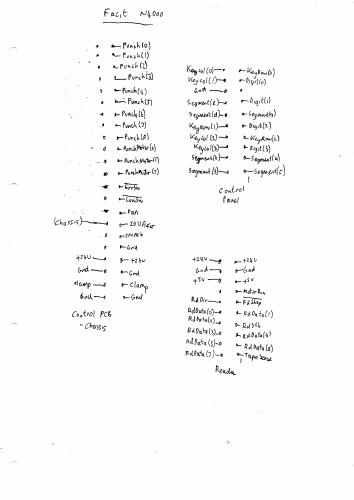 Facit N4000
Punch(0)
Punch(1)
Punch(2)
Punch(3)
Punch(4)
Punch(5)
Punch(6)
Punch(7)
Punch(8)
PunchMotor(0)
PunchMotor(1)
PunchMotor(2)
Error
Fan
(Chassis)
Gnd
+24V +24V
Gnd Gnd
Clamp Clamp
Gnd Gnd
Control PCB
- Chassis
Keycol(0) KeyRow(0)
Keycol(1) Digit(0)
Gnd
Segment(2) Digit(1)
Segment(d)
KeyRow(1) Digit(2)
Keycol(2) KeyRow(2)
Keycol(3) Digit(3)
Segment(a)
Segment(c)
Control
Panel
+24V +24V
Gnd Gnd
+5V +5V
MotorRun
RdDir RdStep
RdData(0) RdData(1)
RdData(2)
RdData(3) RdData(4)
RdData(5) RdData(6)
RdData(7) TapeSense
Reader